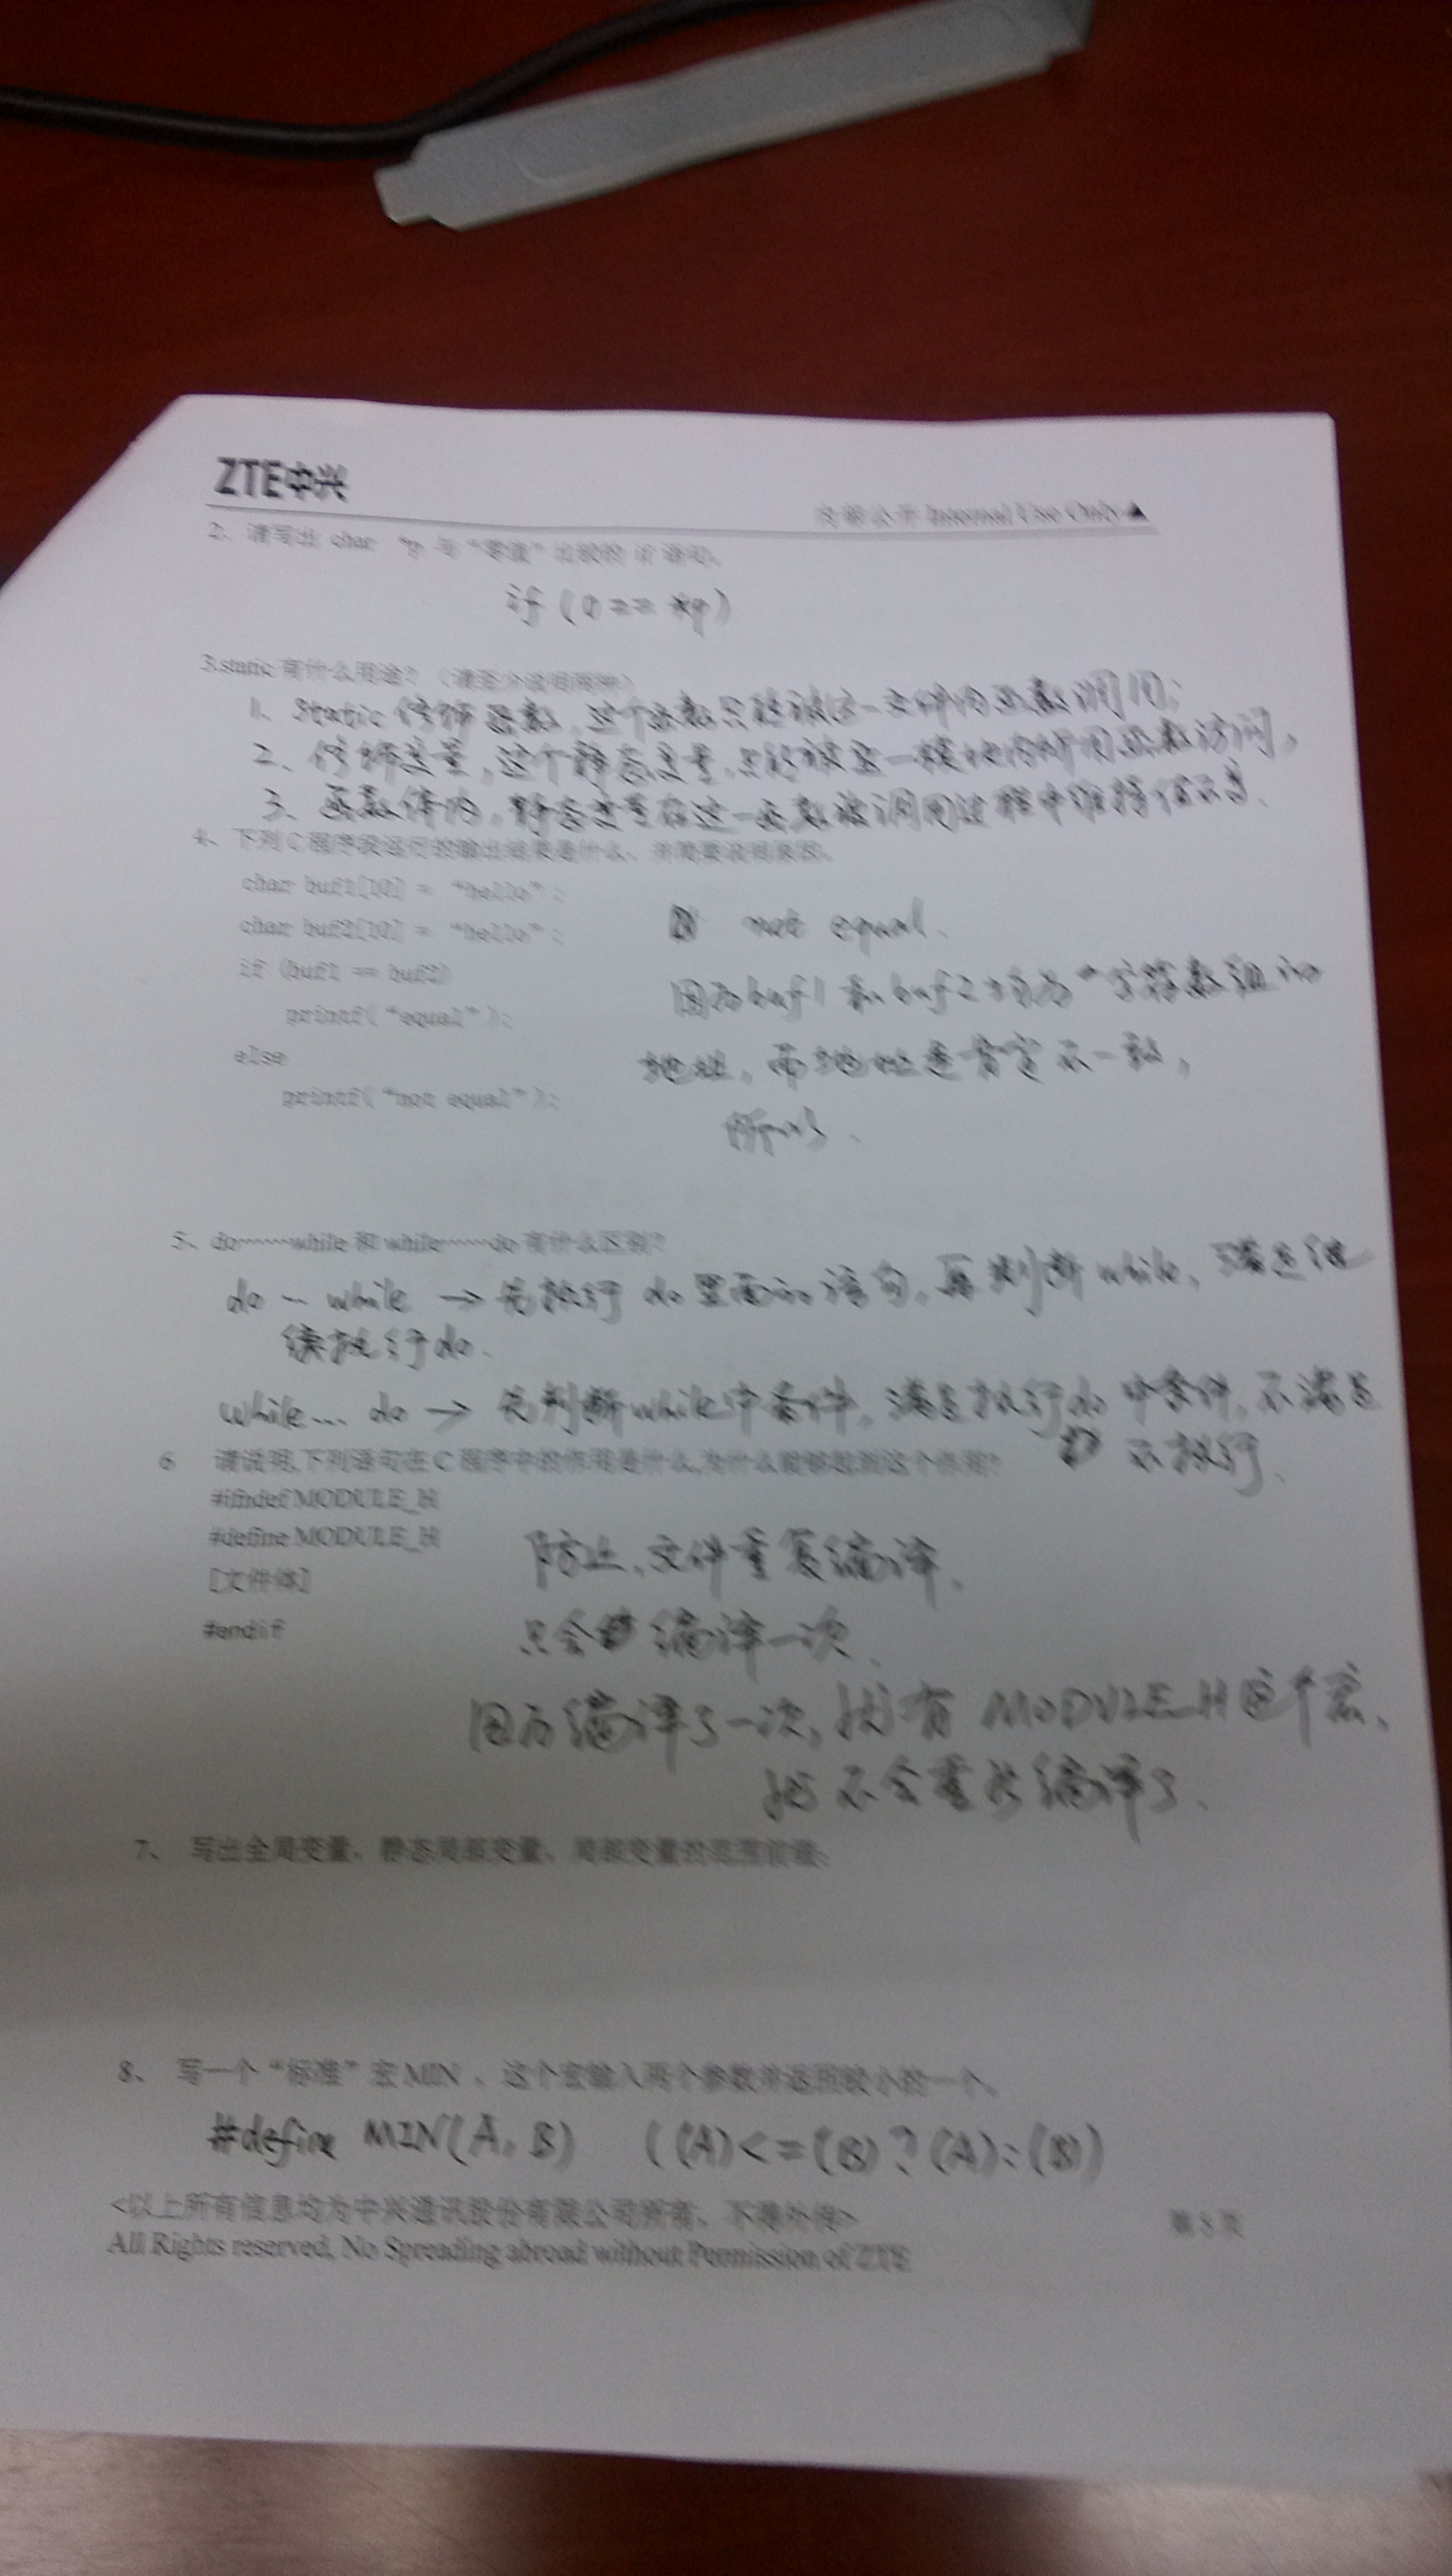 ZTE中兴
内部公开 Internal Use Only▲
2、请写出 char *p 与“零值”比较的 if 语句。
if (0 == *p)
3.static 有什么用途？（请至少说明两种）
1、static 修饰函数，这个函数只能被这一文件内函数调用；
2、修饰变量，这个静态变量，只能被这一模块内所用函数访问，
3、函数体内，静态变量在这一函数被调用过程中维持值不变、
4、下列C程序段运行的输出结果是什么，并简要说明原因。
char buf1[10] = “hello”;
char buf2[10] = “hello”;
not equal.
if (buf1 == buf2)
因为buf1和buf2均为字符数组的
printf(“equal”);
else
地址，而地址是肯定不一致，
printf(“not equal”);
所以
5、do┄┄while 和 while┄┄do 有什么区别？
do — while → 先执行 do 里面的语句，再判断while，满足继
续执行do.
while... do → 先判断while中条件，满足执行do中条件，不满足
不执行、
6 请说明,下列语句在C程序中的作用是什么,为什么能够起到这个作用？
#ifndef MODULE_H
#define MODULE_H
防止，文件重复编译，
[文件体]
#endif
只会编译一次、
因为编译了一次，就有 MODULE_H这个宏、
就不会重新编译了、
7、写出全局变量、静态局部变量、局部变量的范围前缀：
8、写一个“标准”宏MIN ，这个宏输入两个参数并返回较小的一个。
#define MIN(A, B) ((A)<=(B)?(A):(B))
<以上所有信息均为中兴通讯股份有限公司所有，不得外传>
第5页
All Rights reserved, No Spreading abroad without Permission of ZTE